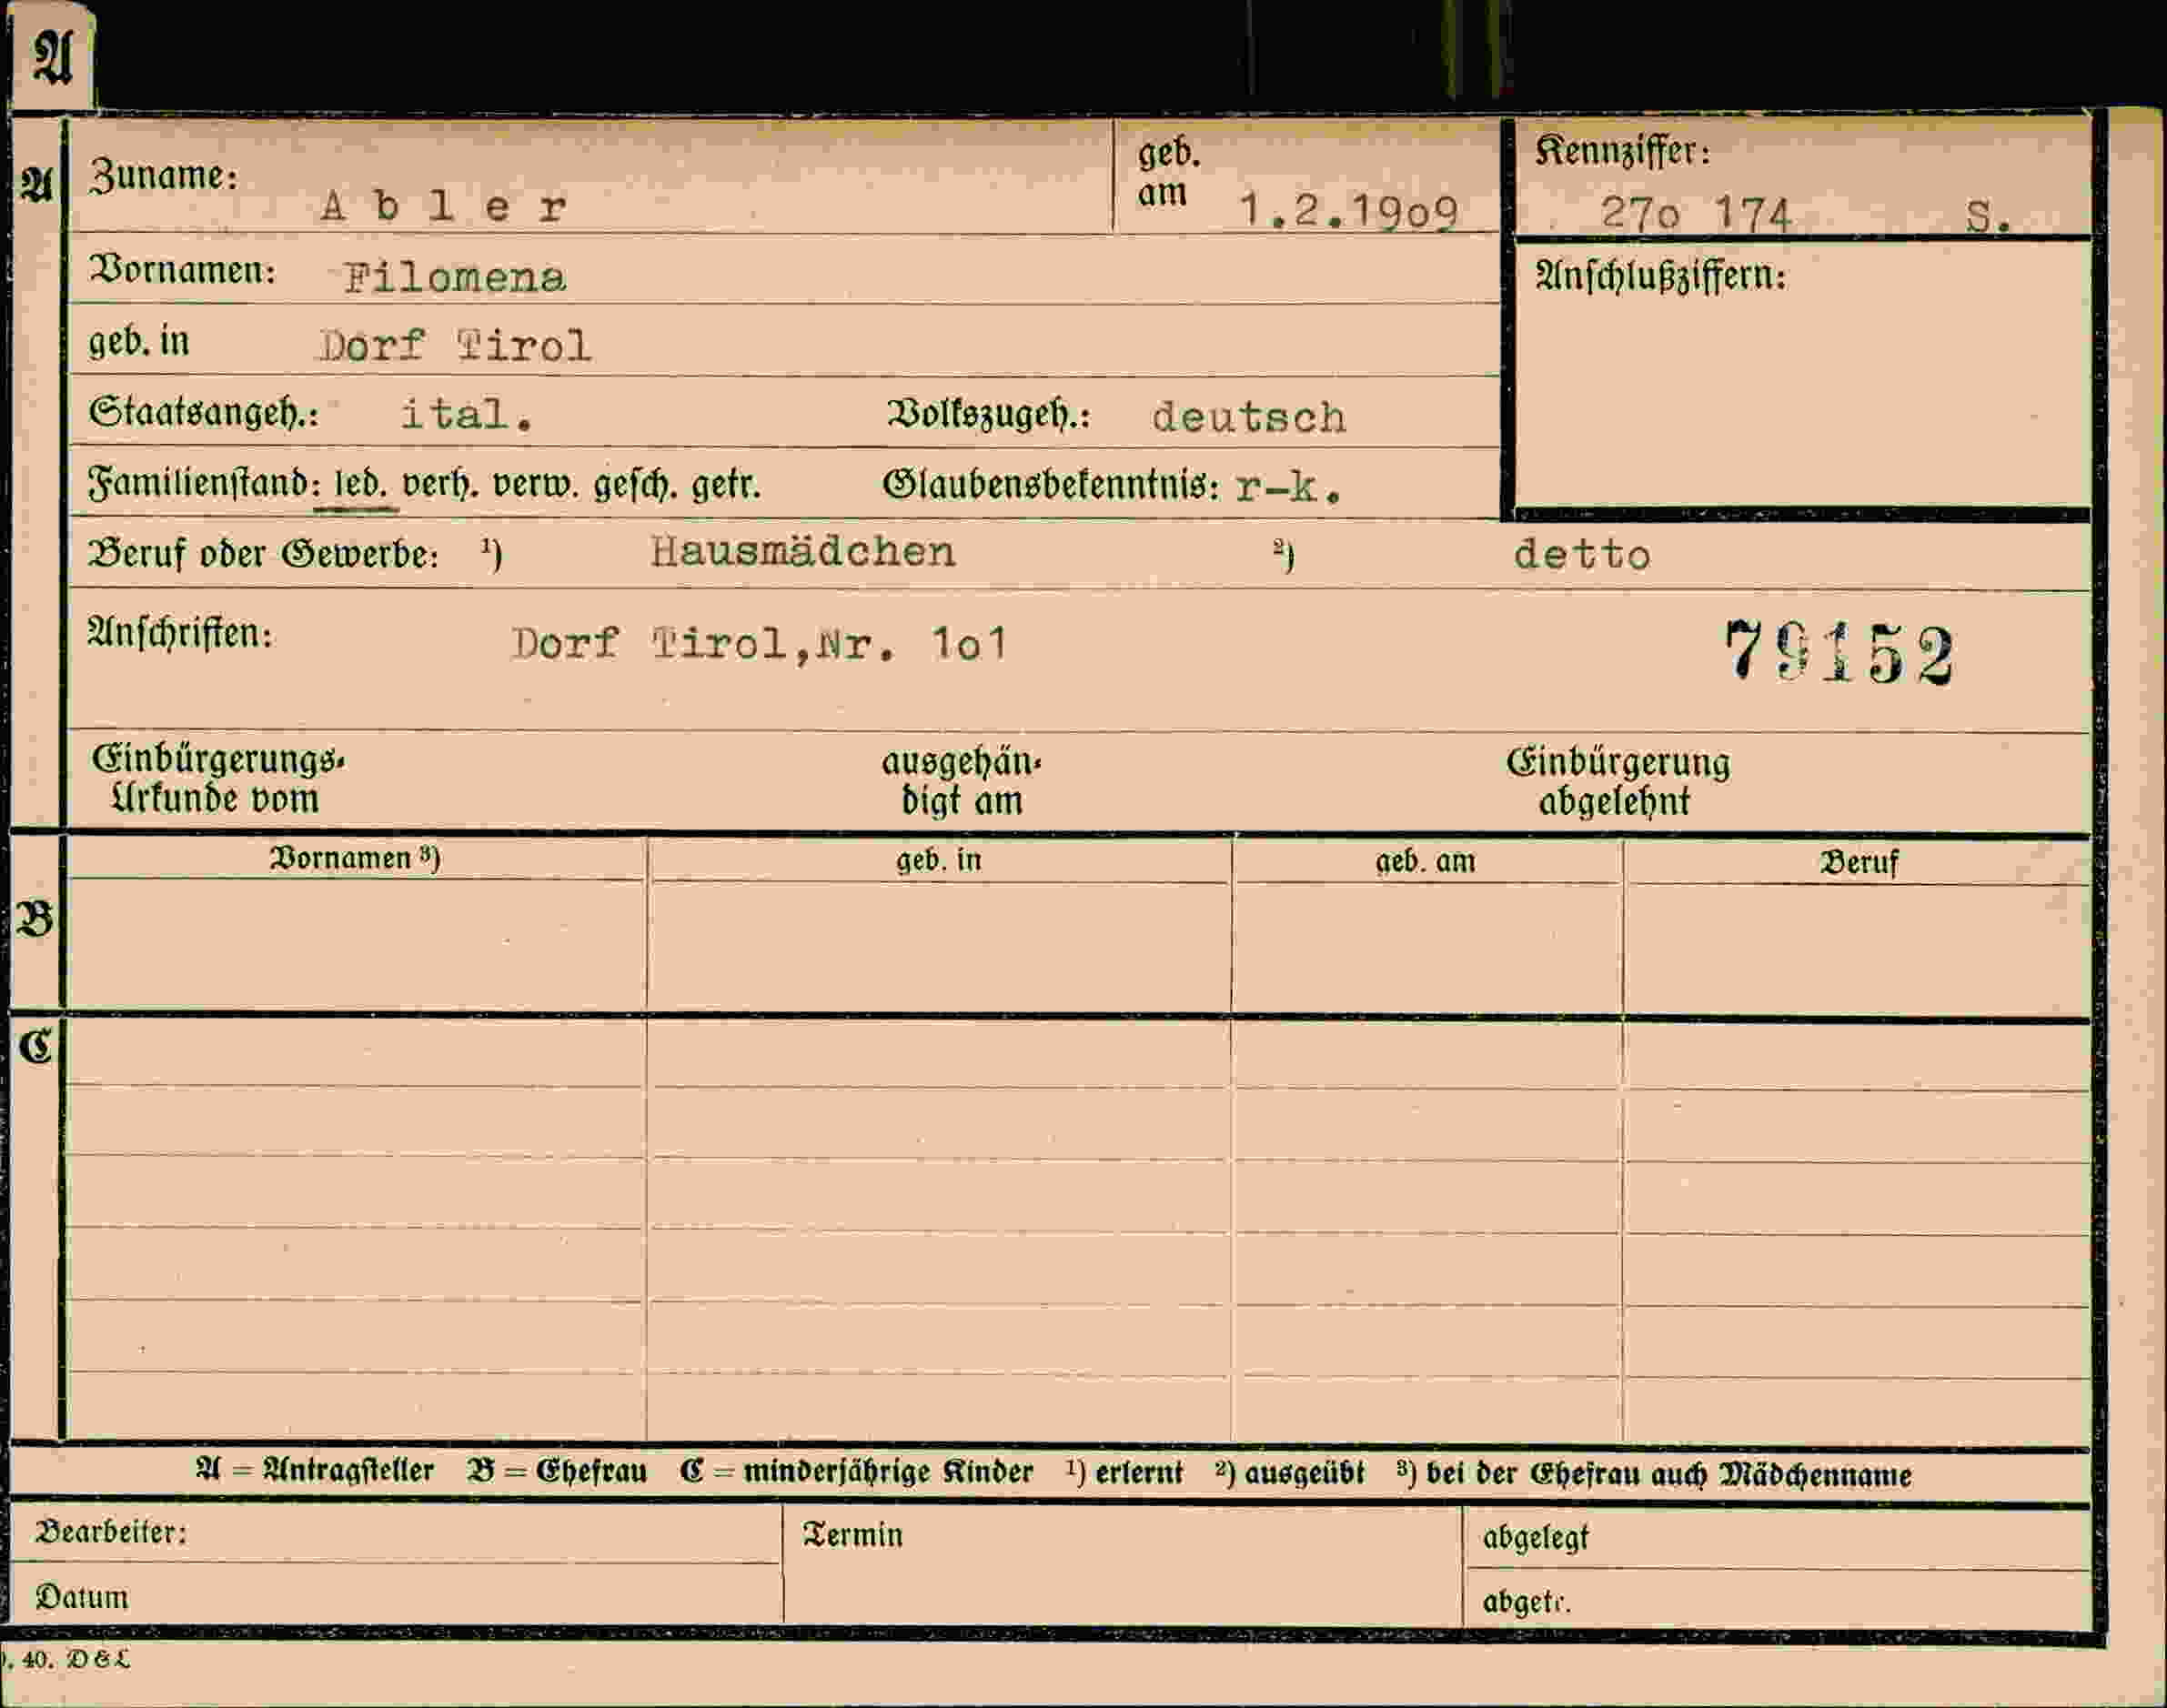 A
A
Zuname: Abler geb. am 1.2.1909 Kennziffer: 27o 174 S.
Vornamen: Filomena Anschlußziffern:
geb. in Dorf Tirol
Staatsangeh.: ital. Volkszugeh.: deutsch
Familienstand: led. verh. verw. gesch. getr. Glaubensbekenntnis: r-k.
Beruf oder Gewerbe: ¹) Hausmädchen ²) detto
Anschriften: Dorf Tirol,Nr. 1o1 79152
Einbürgerungs- ausgehän- Einbürgerung
Urkunde vom digt am abgelehnt
Vornamen ³) geb. in geb. am Beruf
B
C
A = Antragsteller B = Ehefrau C = minderjährige Kinder ¹) erlernt ²) ausgeübt ³) bei der Ehefrau auch Mädchenname
Bearbeiter: Termin abgelegt
Datum abgetr.
. 40. D & L